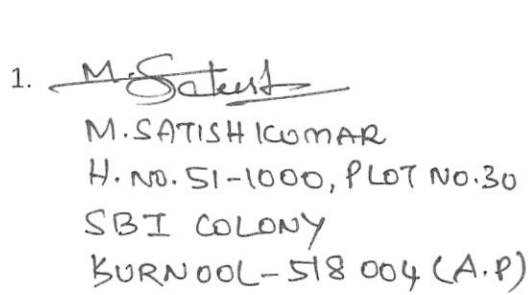 1. M. Satish
M. SATISH KUMAR
H. NO. 51-1000, PLOT NO. 30
SBI COLONY
KURNOOL-518 004 (A.P)